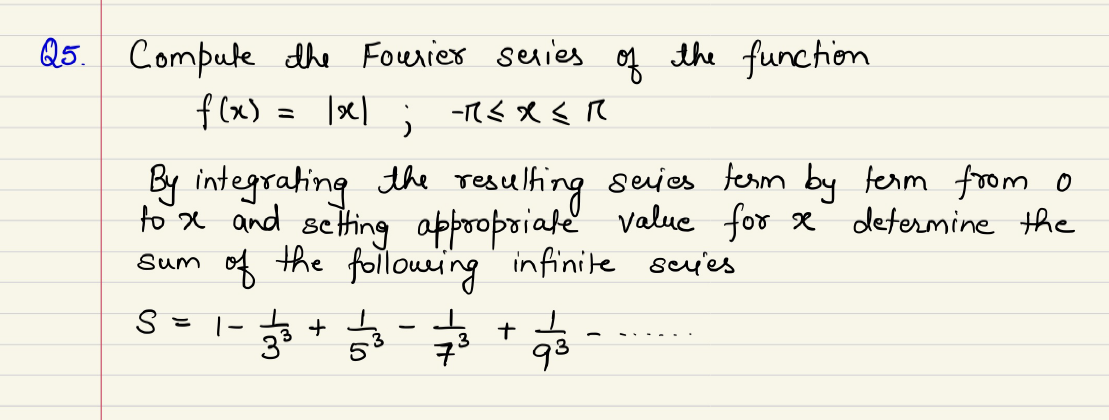 Q5. Compute the Fourier series of the function
f(x) = |x| ; -π ≤ x ≤ π
By integrating the resulting series term by term from 0
to x and setting appropriate value for x determine the
sum of the following infinite series
S = 1 - 1/3³ + 1/5³ - 1/7³ + 1/9³ - ......